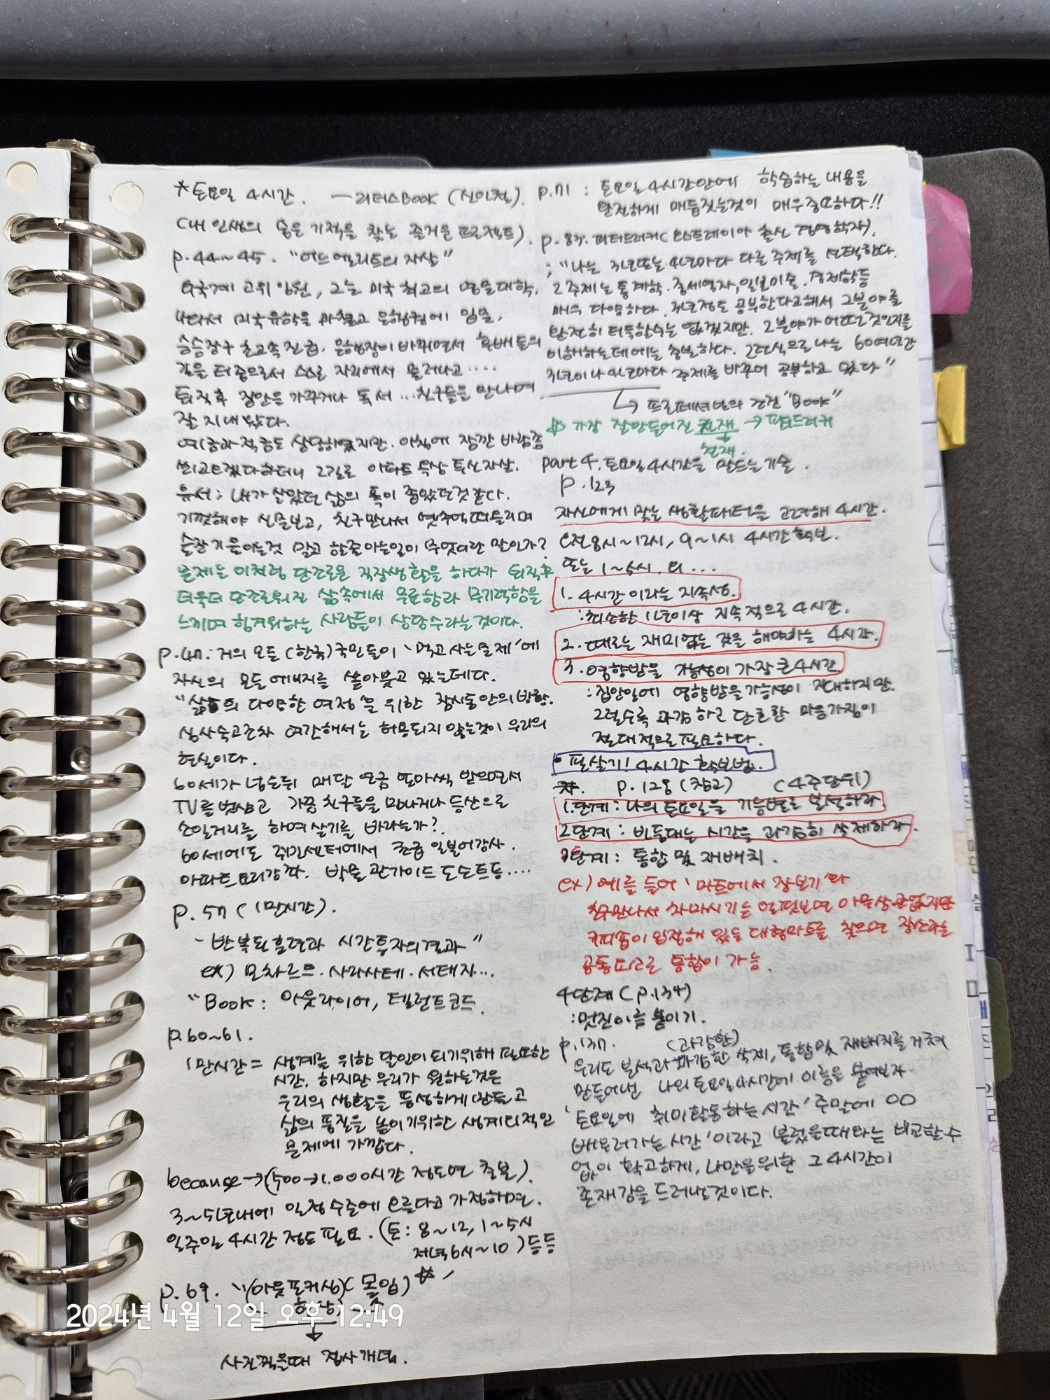 * 토요일 4시간. — 리더스BOOK (신인철).
(내 인생의 숨은 기적을 찾는 즐거운 프로젝트).
p.44~45. "어느 엘리트의 자살"
외국계 고위 임원, 그는 미국 최고의 명문대학.
나와서 미국유학을 마쳤고 은행권에 입문.
승승장구 초고속 진급. 은행장이 바뀌면서 후배들의
길을 터줌으로서 스스로 자리에서 물러나고 ....
퇴직후 집안을 가꾸거나 독서 ... 친구들을 만나며
잘 지내 왔다.
예금과 적금도 상당하였지만. 아침에 잠깐 바람좀
쐬고오겠다하더니 그길로 아파트 옥상 투신자살.
유서 : 내가 살았던 삶의 폭이 좁았던것같다.
기껏해야 신문보고, 친구만나서 옛추억떠올리며
술잔 기울이는것 말고 한줄아는일이 무엇이란 말인가?
문제는 이처럼 단조로운 직장생활을 하다가 퇴직후
더욱더 단조로워진 삶속에서 무료함과 무기력함을
느끼며 힘겨워하는 사람들이 상당수라는것이다.
p.47 : 거의 모든 (한국)국민들이 '먹고 사는 문제'에
자신의 모든 에너지를 쏟아붓고 있는데다.
"삶의 다양한 여정"을 위한 잠시동안의 방황.
심사숙고조차 여간해서는 허용되지 않는것이 우리의
현실이다.
60세가 넘은뒤 매달 연금 얼마씩 받으면서
TV를 벗삼고 가끔 친구들을 만나거나 등산으로
소일거리를 하며 살기를 바라는가?
60세에도 주민센터에서 초급 일본어강사.
아파트 요리강좌. 박물관가이드 도슨트등....
p.57 (1만시간).
- 반복된 훈련과 시간투자의 결과"
ex) 모차르트. 사라사테. 서태지...
"Book : 아웃라이어, 탤런트코드.
p.60~61.
1만시간 = 생계를 위한 달인이 되기위해 필요한
시간. 하지만 우리가 원하는것은
우리의 생활을 풍성하게 만들고
삶의 품질을 높이기위한 생계외적인
문제에 가깝다.
because → (500→1.000시간 정도면 충분).
3~5년내에 일정 수준에 오른다고 가정하면.
일주일 4시간 정도 필요. (토 : 8~12, 1~5시
저녁 6시~10) 등등
p.69. "(아웃포커싱)( 몰입)
현상
사진찍을때 접사개념.
p.71 : 토요일 4시간안에 학습하는 내용을
완전하게 매듭짓는것이 매우중요하다!!
p.83. 피터드러커 (오스트레이아 출신 경영학자).
; "나는 3년또는 4년마다 다른 주제를 선택한다.
그 주제는 통계학. 중세역사, 일본미술. 경제학등
매우 다양하다. 3년정도 공부한다고해서 그분야를
완전히 터득할수는 없겠지만. 그 분야가 어떠한것인지를
이해하는데에는 충분하다. 그런식으로 나는 60여년간
3년이나 4년마다 주제를 바꾸어 공부하고 있다"
↳ 프로페셔널의 조건 "Book"
가장 잘만들어진 천재 → 피터드러커
천재.
part 4. 토요일 4시간을 만드는 기술.
p.123
자신에게 맞는 생활패턴을 고려해 4시간.
오전 8시~12시, 9~1시 4시간 확보.
또는 1~5시 의 ...
1. 4시간 이라는 지속성.
: 최소한 1년이상 지속적으로 4시간.
2. 때로는 재미없는 것을 해야하는 4시간.
3. 영향받을 가능성이 가장 큰 4시간
: 집안일에 영향받을가능성이 지대하지만.
그럴수록 과감하고 단호한 마음가짐이
절대적으로 필요하다.
필살기! 4시간 확보법.
p.128 (참고) (4주단위)
1.단계 : 나의 토요일을 기능별로 분석하라
2단계 : 빈둥대는 시간을 과감히 삭제하라.
3단계 : 통합 및 재배치.
ex) 예를 들어 '마트에서 장보기'와
친구만나서 차마시기는 언뜻보면 아무상관없지만
커피숍이 입점해 있는 대형마트를 찾으면 장소라는
공통되고로 통합이 가능.
4단계 (p.134)
: 멋진이름 붙이기.
p.137. (과감한)
우리도 분석과 과감한 삭제, 통합및 재배치를 거쳐
만들어낸 나의 토요일 4시간에 이름을 붙여보자
'토요일에 취미활동하는 시간' 주말에 OO
배우러가는 시간'이라고 불렀을때와는 비교할수
없이 확고하게, 나만을위한 그 4시간이
존재감을 드러낼것이다.
2024년 4월 12일 오후 12:49